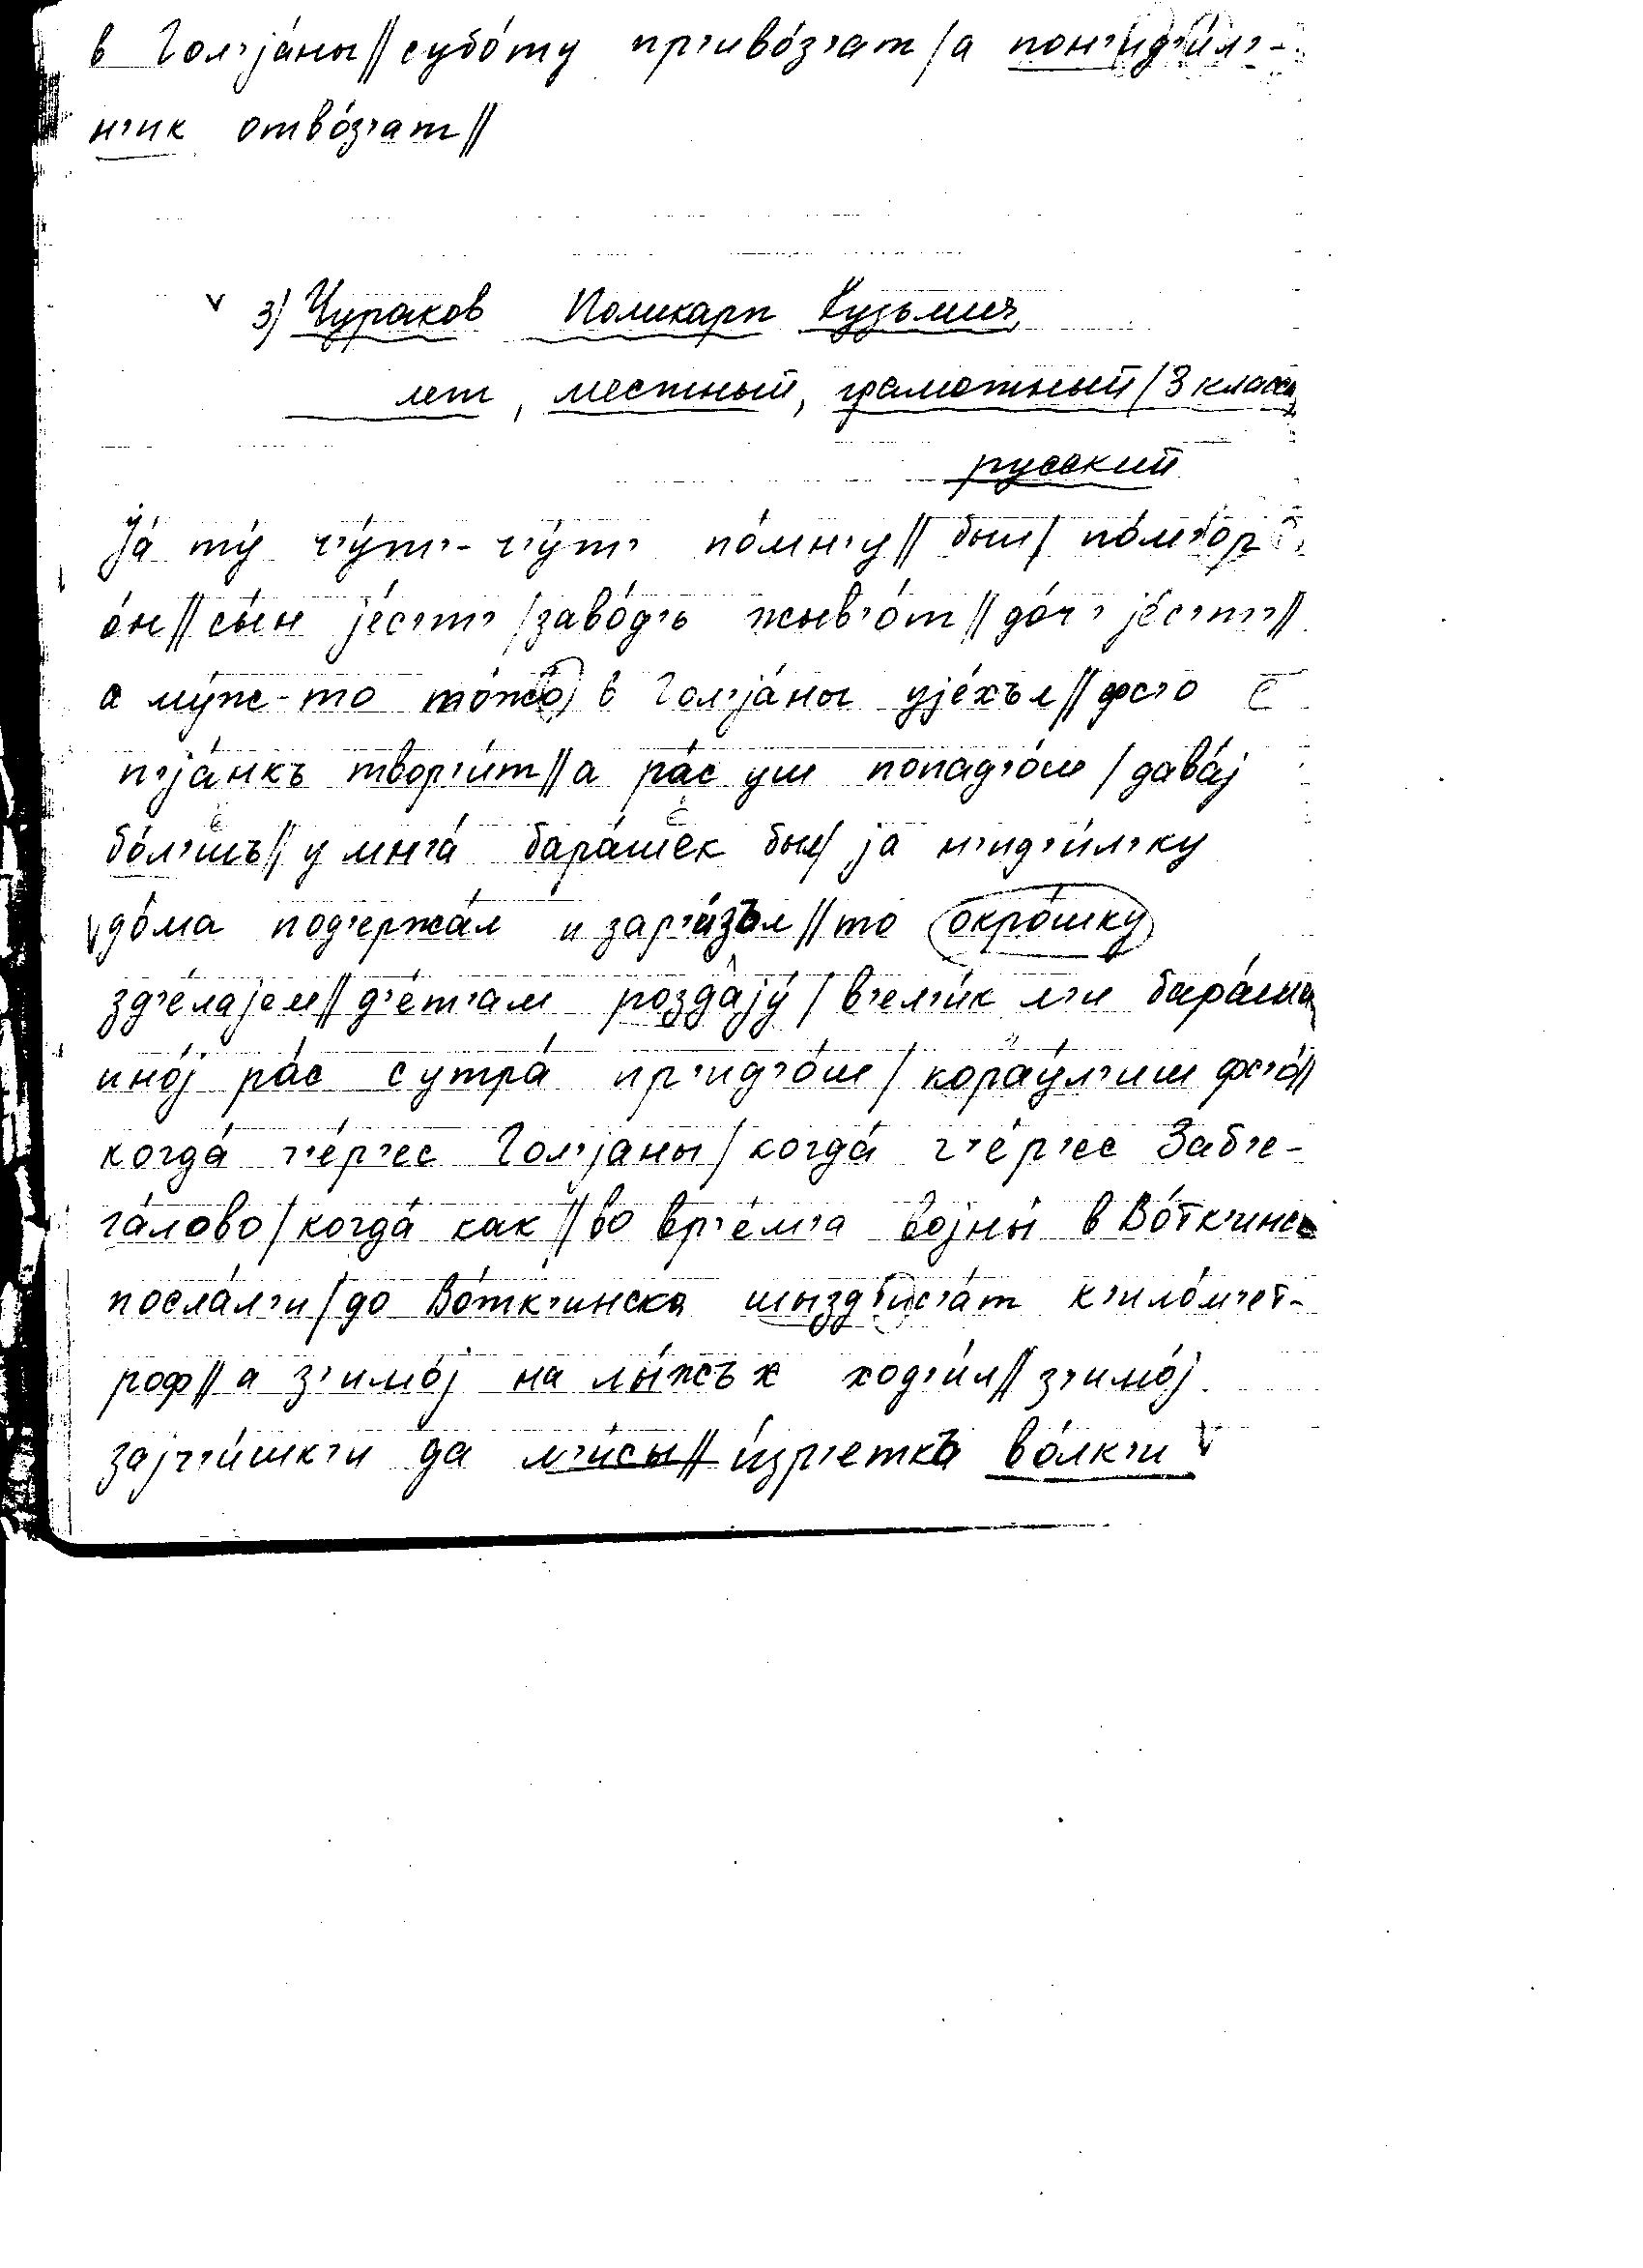 в Гол'jа́ны // субо́ту пр'иво́з'ат / а пон'ид'и́л'-
н'ик отво́з'ат //
3) Чураков Поликарп Кузьмич,
лет, местный, грамотный / 3 класса,
русский
Jа́ ту́ ч'у́т'-ч'у́т' по́мн'у // был /
о́н // сы́н jе́с'т' / заво́д'ь жыв'о́т // до́ч' jе́с'т' //
а му́ж-то то́жо в Гол'jа́ны уjе́хъл // фс'о
п'jа́нкъ твор'и́т // а ра́с уш попад'о́ш / дава́j
бо́л'шъ // у мн'а́ бара́шек был / jа н'ид'и́л'ку
до́ма под'ержа́л и зар'и́зъл // то окро́шку
зд'е́лаjем // д'е́т'ам роздаjу́ / в'ел'и́к л'и бара́шка
ино́j ра́с с утра́ пр'ид'о́ш / корау́л'иш фс'о́ //
когда́ ч'е́р'ес Гол'jаны / когда́ ч'е́р'ес Заб'е-
га́лово / когда́ как // во вр'е́м'а воjны́ в Во́тк'инск
посла́л'и / до Во́тк'инска шызд'ис'а́т к'ило́м'ет-
роф // а з'имо́j на лы́жъх ход'и́л // з'имо́j
заjч'и́шк'и да л'и́сы // и́зр'еткъ во́лк'и